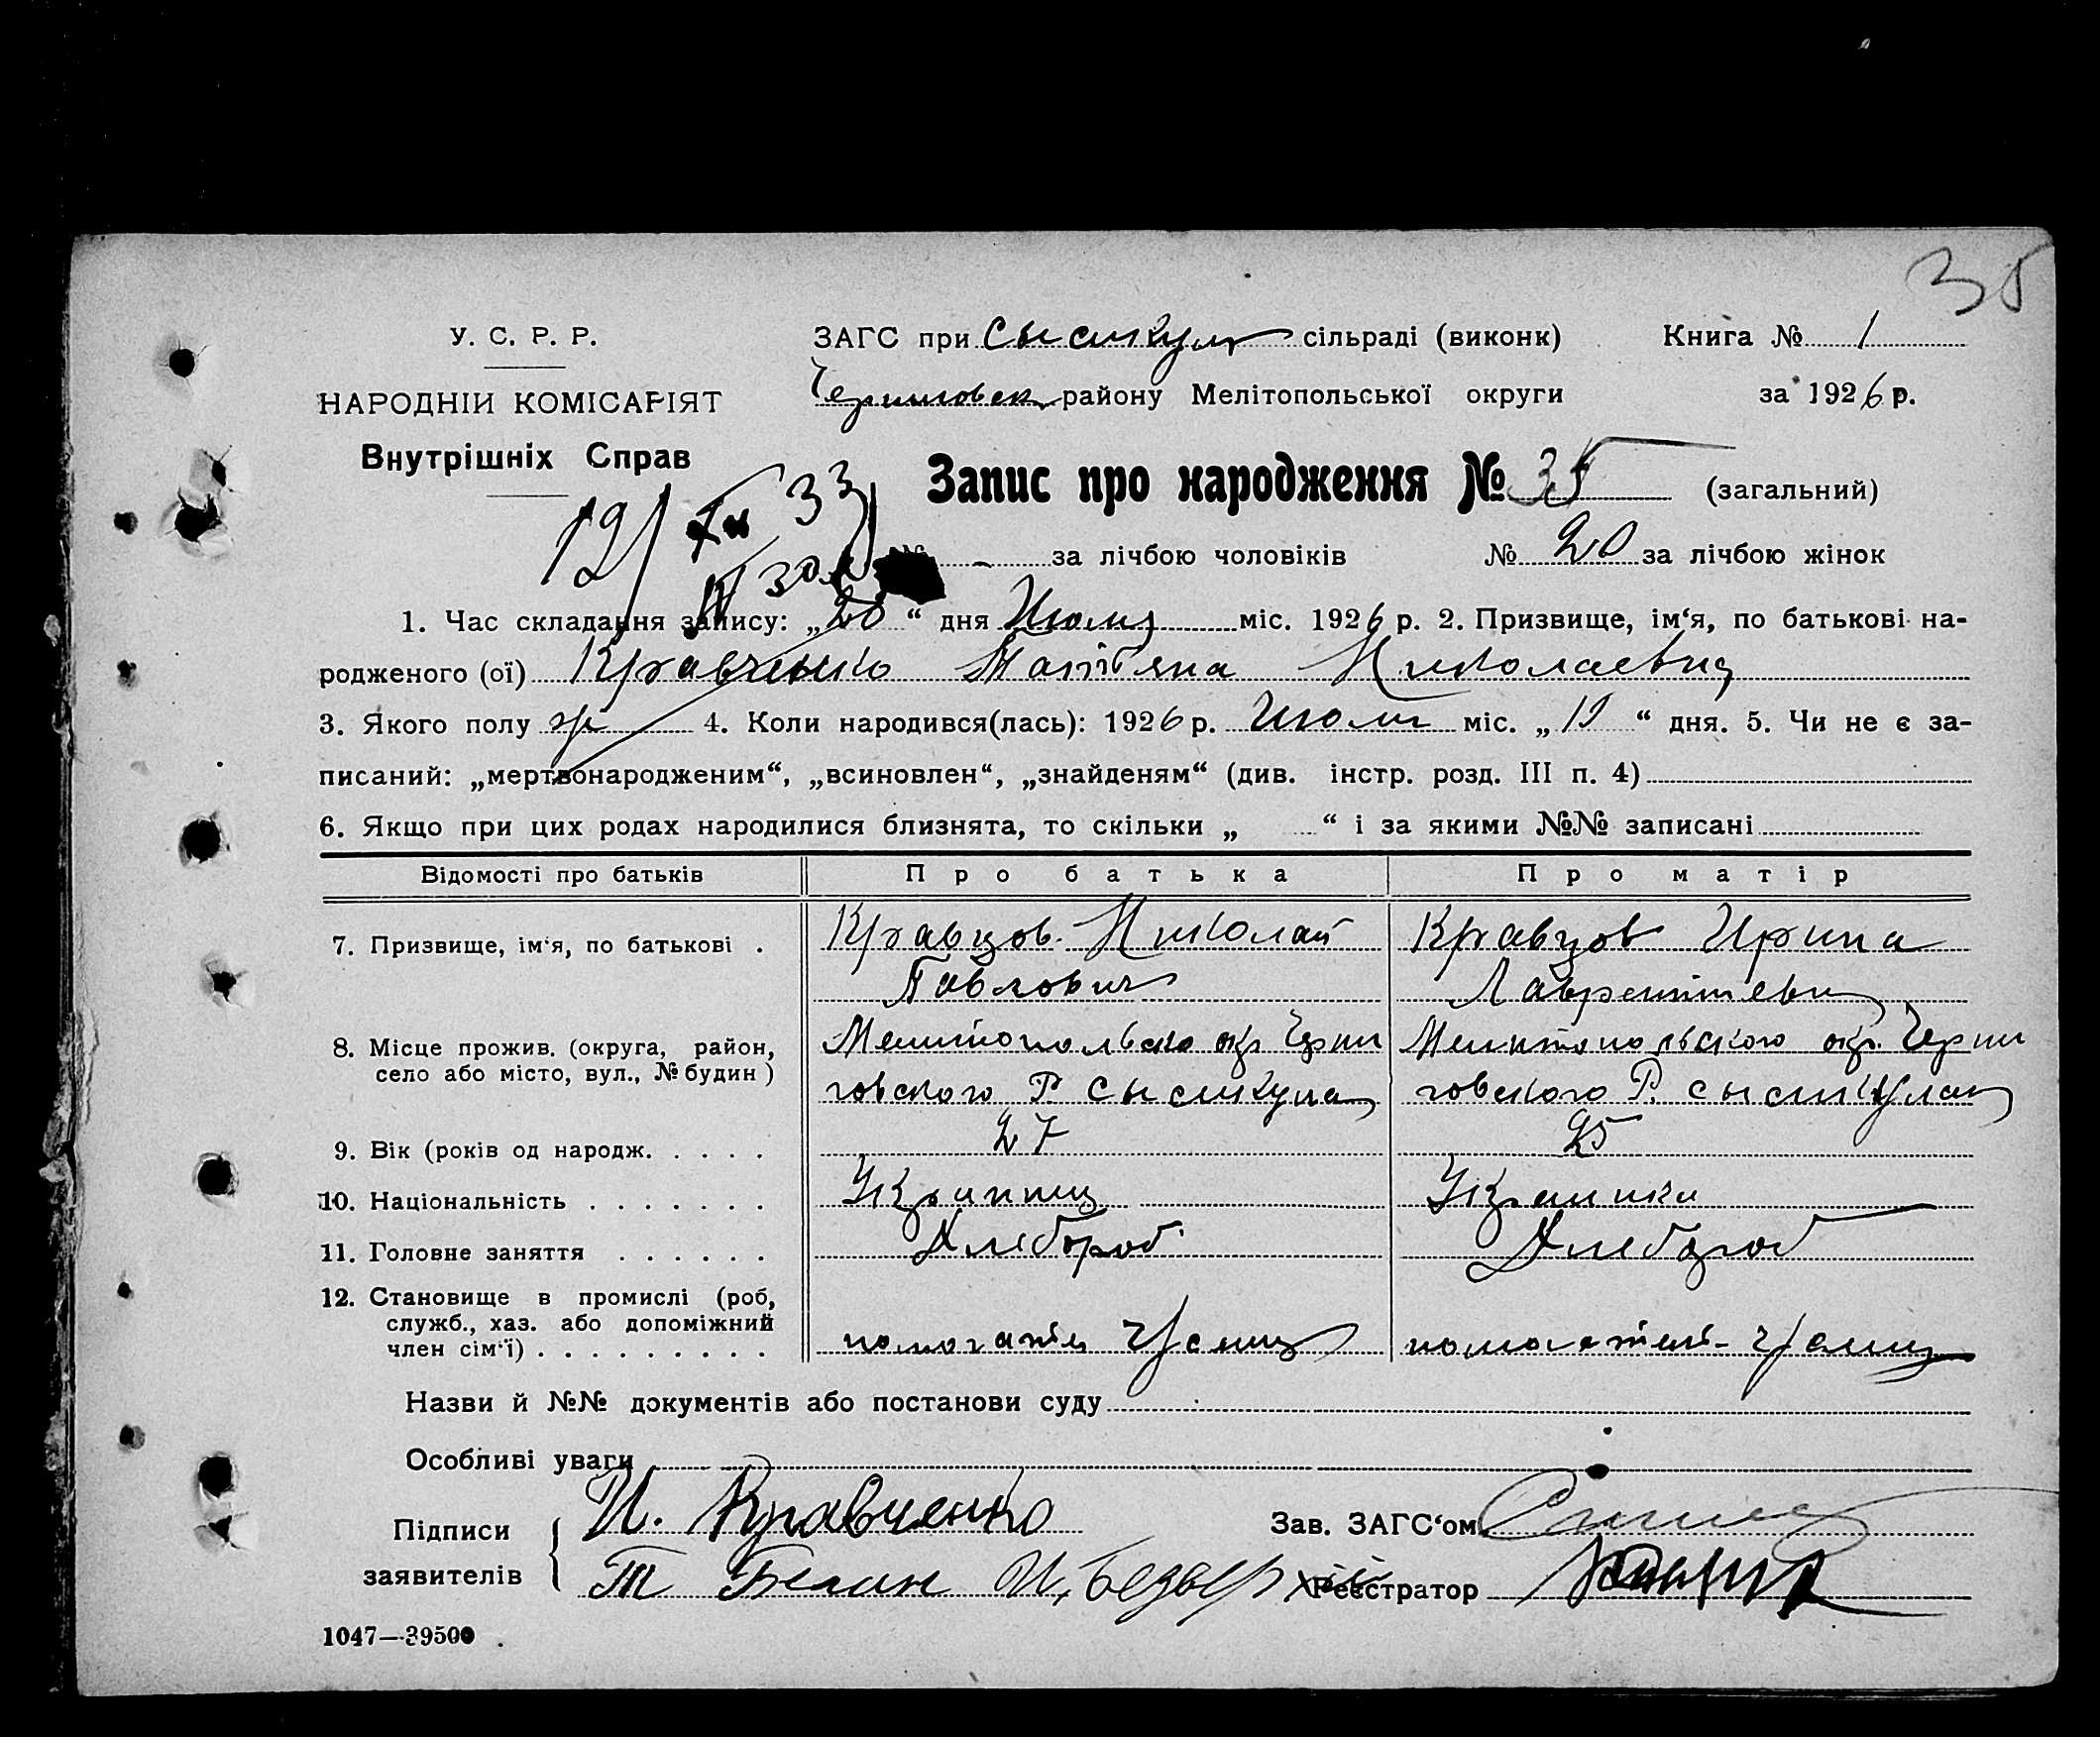 35
У. С. Р. Р.
ЗАГС при Сысикул сільраді (виконк) Книга № 1
НАРОДНІЙ КОМІСАРІЯТ
Черниговск району Мелітопольської округи за 1926 р.
Внутрішніх Справ
Запис про народження № 35 (загальний)
12/ 33
№ - за лічбою чоловіків № 20 за лічбою жінок
1. Час складання запису: „20“ дня Июля міс. 1926 р. 2. Призвище, ім‘я, по батькові на-
родженого (ої) Кравченко Татьяна Николаевна
3. Якого полу ж 4. Коли народився(лась): 1926 р. Июля міс. „12“ дня. 5. Чи не є за-
писаний: „мертвонародженим“, „всиновлен“, „знайденям“ (див. інстр. розд. III п. 4)
6. Якщо при цих родах народилися близнята, то скільки „ “ і за якими №№ записані
Відомості про батьків Про батька Про матір
7. Призвище, ім‘я, по батькові . Кравцов Николай Кравцов Ирина
Павлович Лаврентиевна
8. Місце прожив. (округа, район, Мелитопольско окр Черни Мелитопольского окр. Черни
село або місто, вул., № будин) говского Р. Сысикула говского Р. Сысикулак
9. Вік (років од народж. . . . . 27 25
10. Національність . . . . . . . Украинец Украинка
11. Головне заняття . . . . . . Хлебороб Хлебороб
12. Становище в промислі (роб,
служб., хаз. або допоміжний
член сім‘ї) . . . . . . . . . помогатель
Назви й №№ документів або постанови суду
Особливі уваги
Підписи И. Кравченко Зав. ЗАГС‘ом
заявителів Т Белик И, Реєстратор
1047—39500